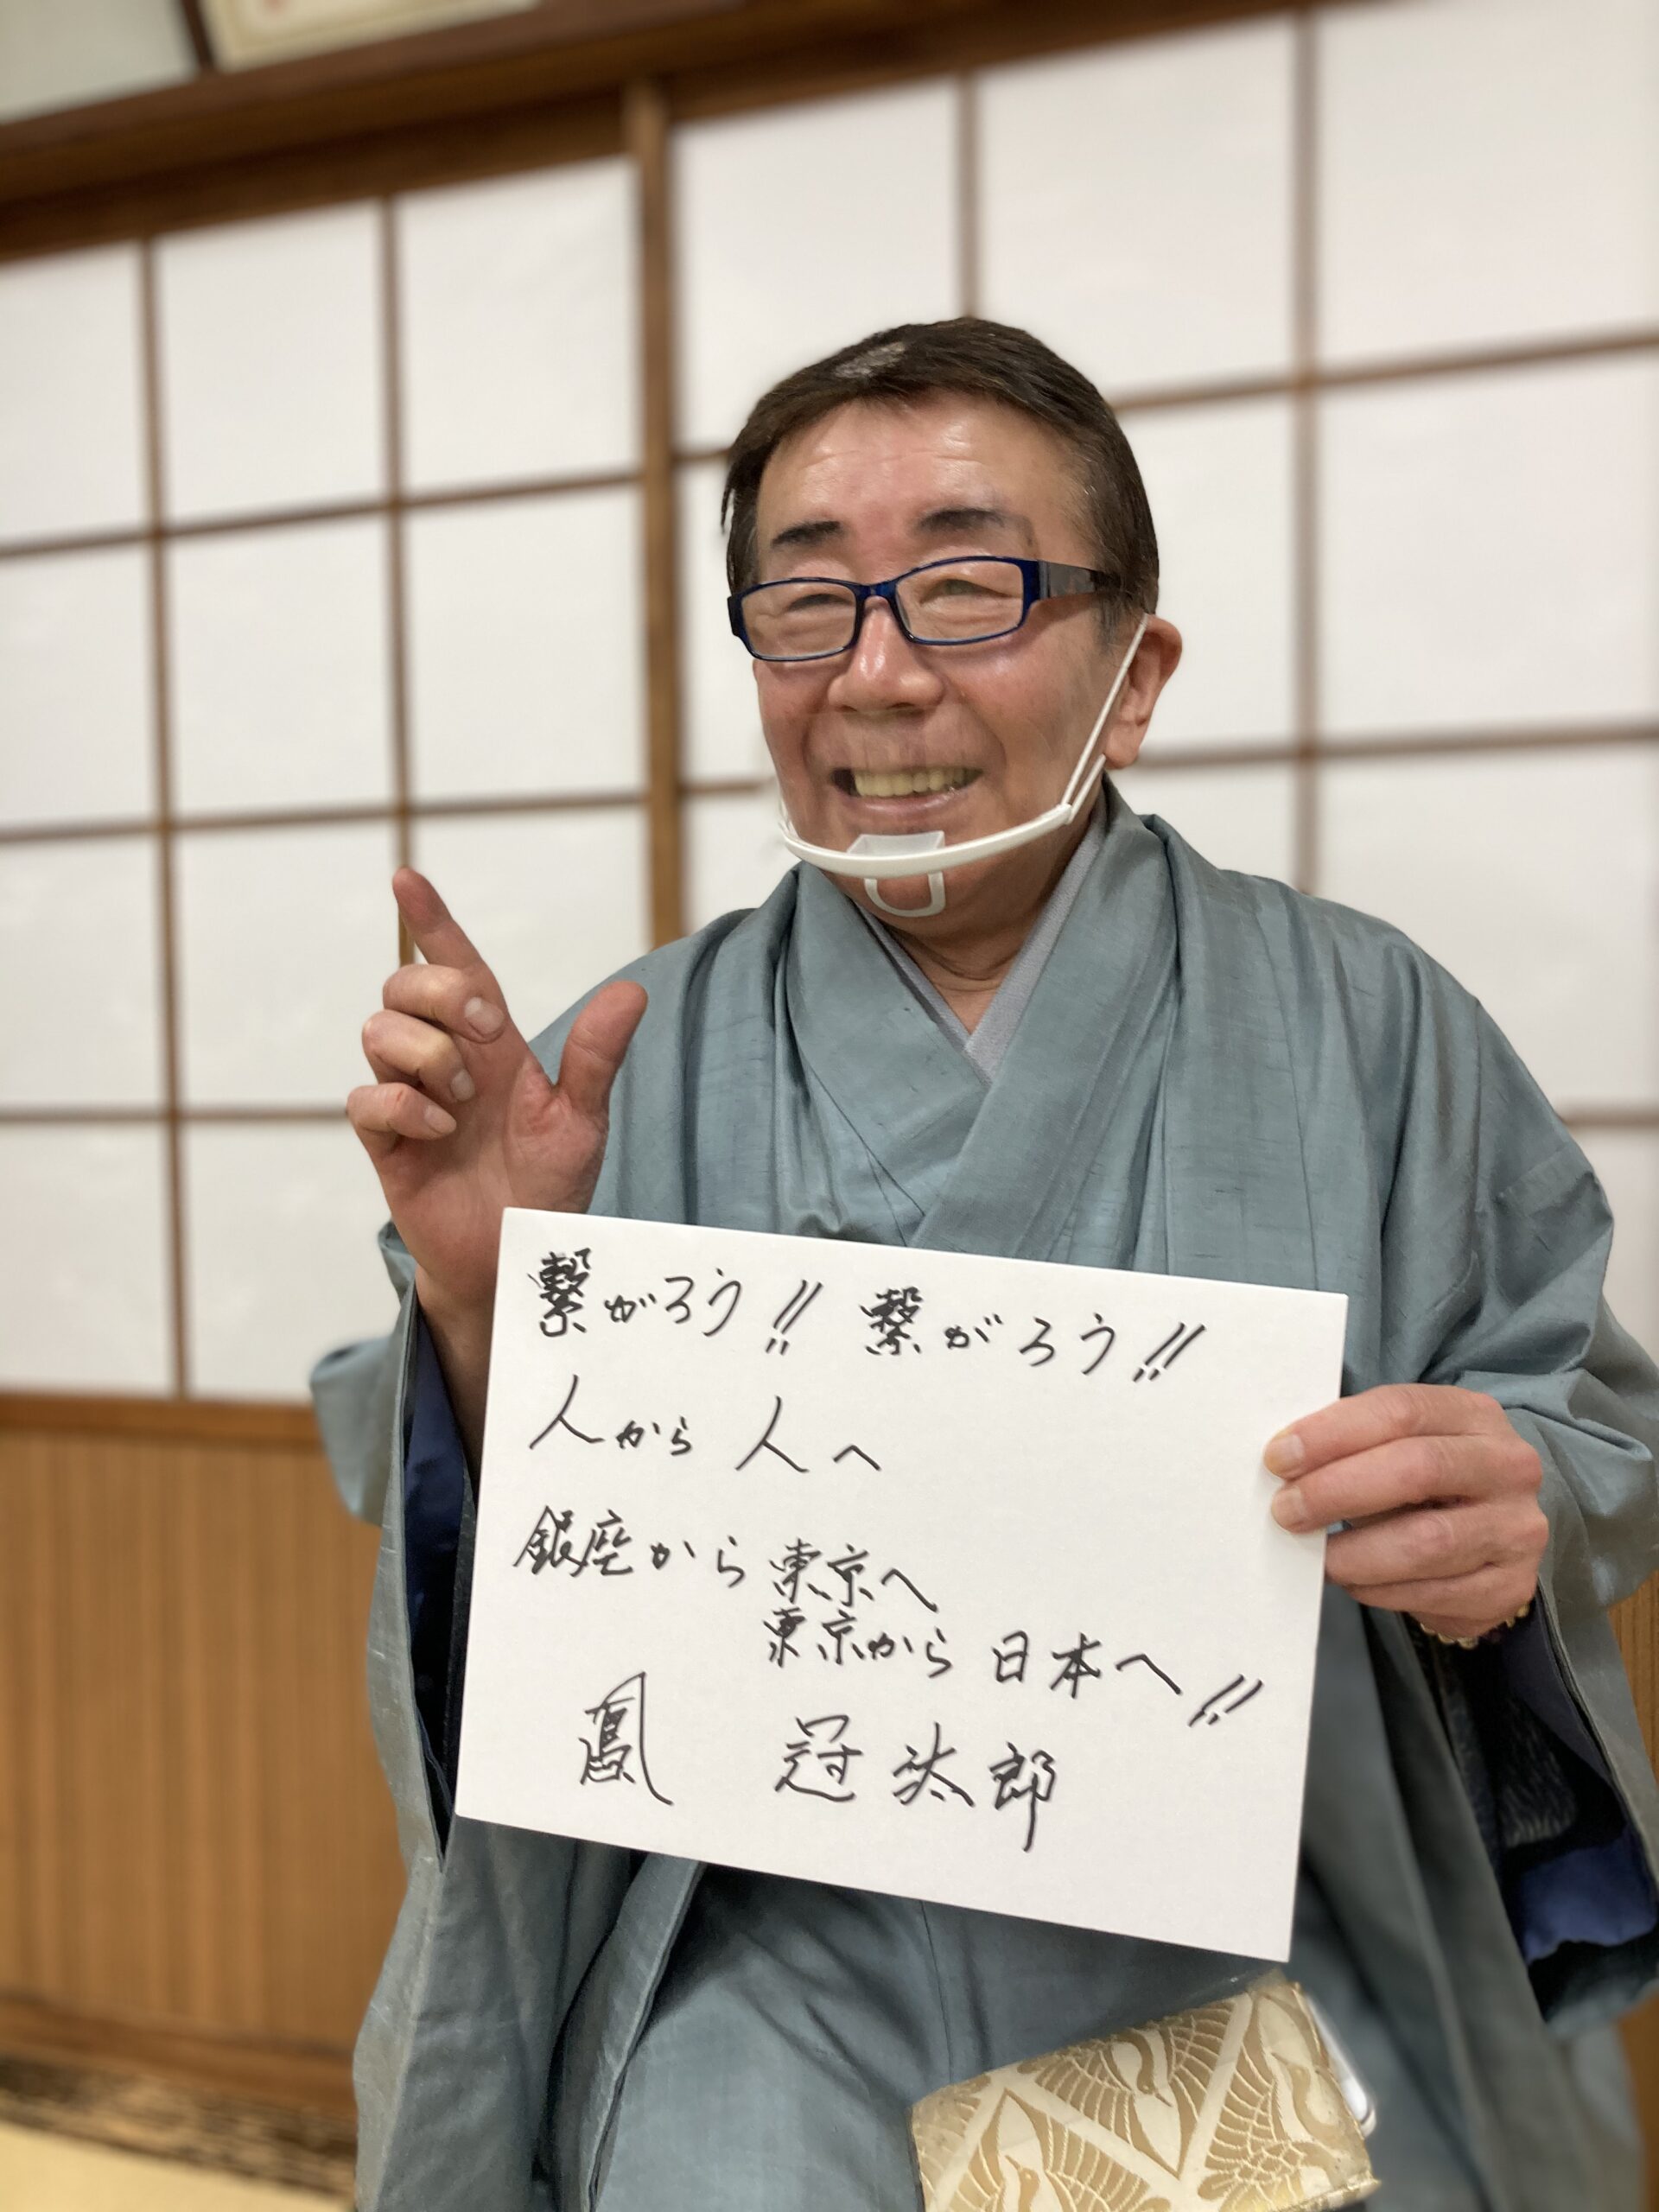 繋がろう!! 繋がろう!!
人から 人へ
銀座から東京へ
東京から 日本へ!!
鳳 冠太郎